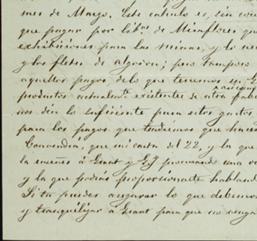 mes de Mayo. Este calculo es, sin con
que pagar por lib.s de Miraflores y qu
exhibiciones para las minas, y lo ne
y los fletes de algodon; pero tampoco
aquellos pagos de lo que tenemos en
productos actualmte existentes de otra fabri
nos den lo suficiente para estos gastos
para los pagos que tendremos que hacer
que mi carta del 22, y la que
la sueños á Grant y procurando una
y la que podria proporcionarte hablando
Si tu puedes arreglar lo que debemos
y tranquilizar á Grant para que no venga